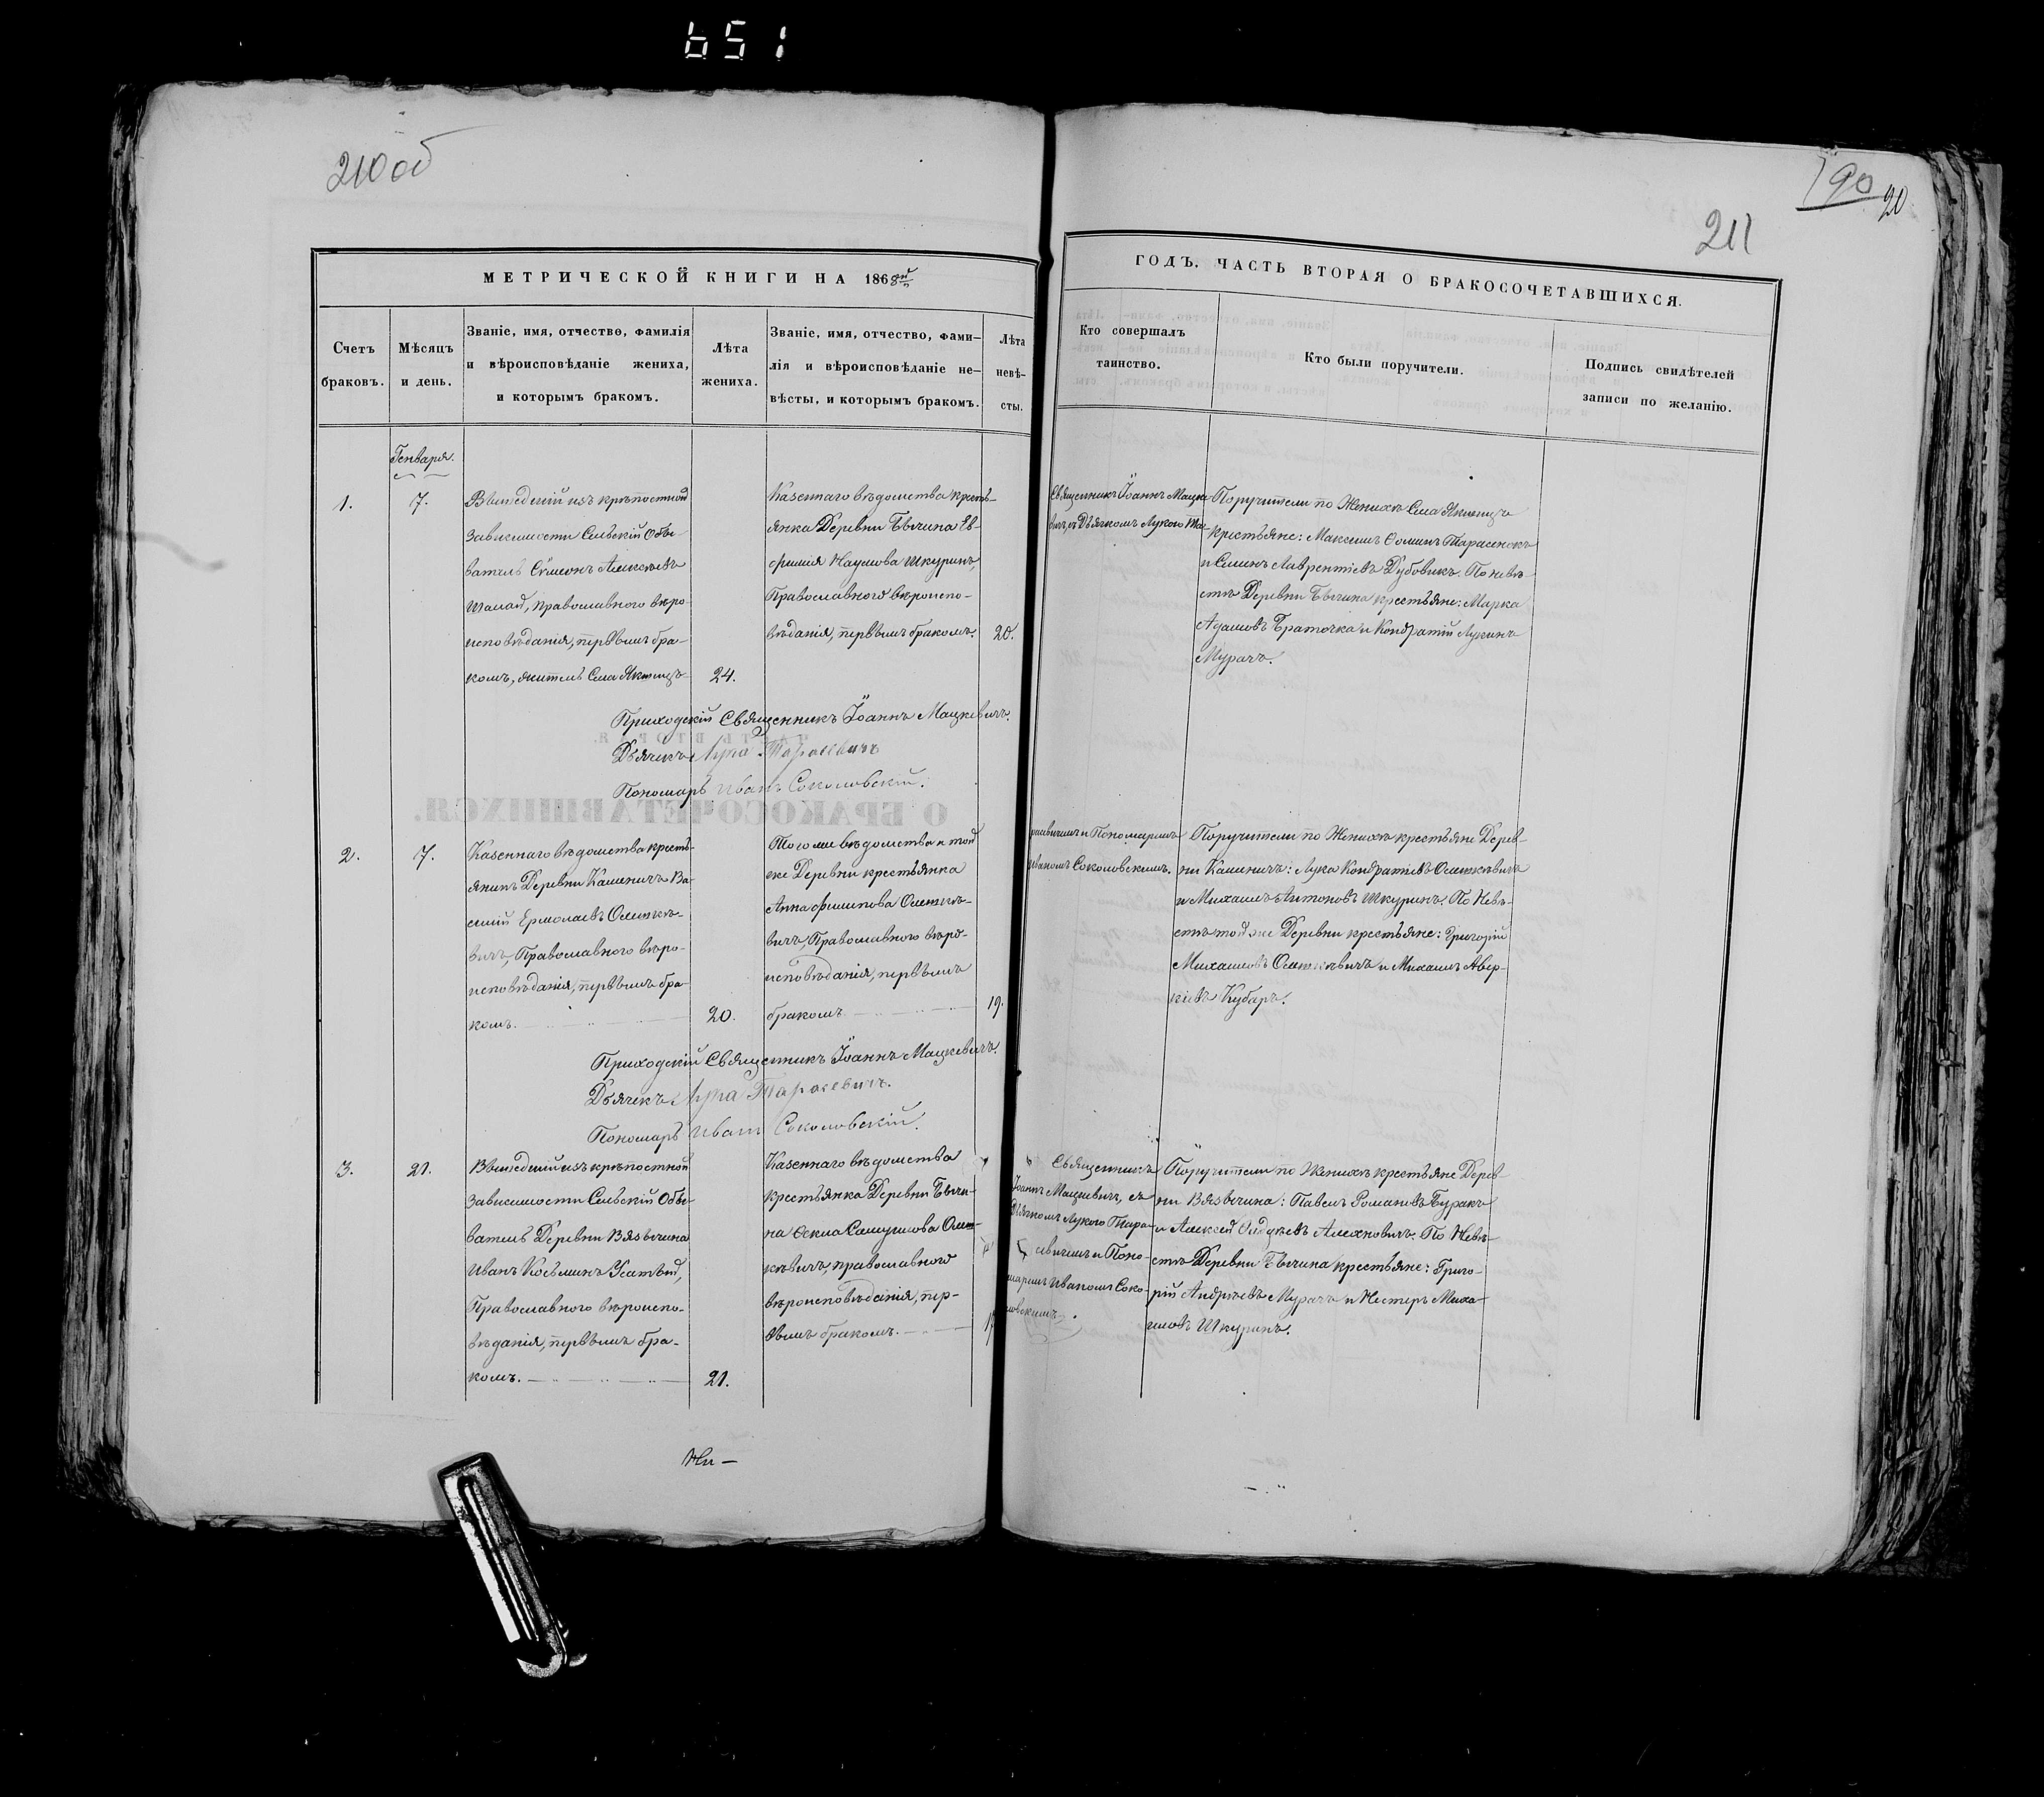 651
210 об
190
20
211
МЕТРИЧЕСКОЙ КНИГИ НА 1868й
ГОДЪ. ЧАСТЬ ВТОРАЯ О БРАКОСОЧЕТАВШИХСЯ.
Счетъ
браковъ.
Мѣсяцъ
и день.
Званіе, имя, отчество, фамилія
и вѣроисповѣданіе жениха,
и которымъ бракомъ.
Лѣта
жениха.
Званіе, имя, отчество, фами-
лія и вѣроисповѣданіе не-
вѣсты, и которымъ бракомъ.
Лѣта
невѣ-
сты.
Кто совершалъ
таинство.
Кто были поручители.
Подпись свидѣтелей
записи по желанію.
Генваря.
1.
7.
Вышедшій изъ крѣпостной
зависимости Сельскій Обы-
ватель Сѵмеонъ Алексѣевъ
Шалай, православнаго вѣро
исповѣданія, первымъ бра-
комъ, житель Села
24.
Казеннаго вѣдомства кресть-
янка Деревни Бычина Ев-
фимія Наумова Шкуринъ,
Православнаго вѣроиспо-
вѣданія, первымъ бракомъ.
20.
Священникъ Іоаннъ Мацке
вичъ, съ Дьячкомъ Лукою Та-
Поручители по Женихѣ Села
крестьяне: Максимъ Ѳоминъ Тарасенокъ
и Семенъ Лаврентіевъ Дубовикъ. По невѣ-
стѣ Деревни Бычина крестьяне: Марка
Адамовъ Браточка и Кондратій Лукинъ
Мурачъ.
Приходскій Священникъ Іоаннъ Мацкевичъ.
Дьячекъ Лука Тарасевичъ
Пономарь Иванъ Соколовскій.
2.
7.
Казеннаго вѣдомства кресть-
янинъ Деревни Каменичъ Ва-
силій Ермолаевъ Олешкѣ-
вичъ, Православнаго вѣро-
исповѣданія, первымъ бра-
комъ.
20.
Того же вѣдомства и той
же Деревни крестьянка
Анна Филипова Олешкѣ-
вичъ, Православнаго вѣро-
исповѣданія, первымъ
бракомъ
19.
расевичемъ и Пономаремъ
Иваномъ Соколовскимъ.
Поручители по Женихѣ крестьяне Дерев-
ни Каменичъ: Лука Кондратіевъ Олешкѣвичъ
и Михаилъ Антоновъ Шкуринъ. По Невѣ-
стѣ той же Деревни крестьяне: Григорій
Михаиловъ Олешкѣвичъ и Михаилъ Авер-
кіевъ Кубаръ.
Приходскій Священникъ Іоаннъ Мацкевичъ.
Дьячекъ Лука Тарасевичъ.
Пономарь Иванъ Соколовскій.
3.
21.
Вышедшій изъ крѣпостной
зависимости Сельскій Обы-
ватель Деревни Вязычина
Иванъ Косьминъ Усатый,
Православнаго вѣроиспо-
вѣданія, первымъ бра-
комъ.
21.
Казеннаго вѣдомства
крестьянка Деревни Бычи-
на Ѳекла Самуилова Олеш-
кѣвичъ, православнаго
вѣроисповѣданія, пер-
вымъ бракомъ.
Священникъ
Іоаннъ Мацкевичъ, съ
Дьячкомъ Лукою Тара-
севичемъ и Поно-
маремъ Иваномъ Соко-
ловскимъ.
Поручители по Женихѣ крестьяне Дерев-
ни Вязычина: Павелъ Романовъ Буракъ
и Алексей Алехновичъ. По Невѣ-
стѣ Деревни Бычина крестьяне: Григо-
рій Андреевъ Мурачъ и Нестеръ Миха-
иловъ Шкуринъ.